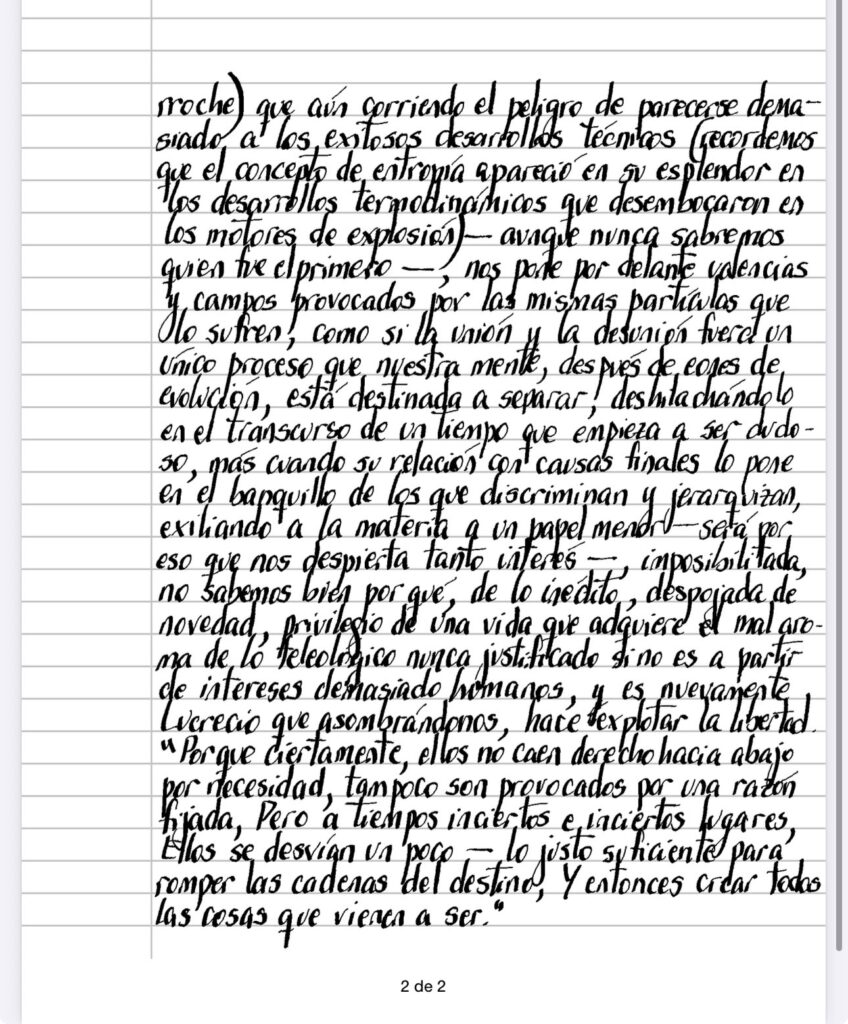 rroche) que aún corriendo el peligro de parecerse dema-
siado a los exitosos desarrollos técnicos (recordemos
que el concepto de entropía apareció en su esplendor en
los desarrollos termodinámicos que desembocaron en
los motores de explosión) — aunque nunca sabremos
quien fue el primero —, nos pone por delante valencias
y campos provocados por las mismas partículas que
lo sufren, como si la unión y la desunión fuera un
único proceso que nuestra mente, después de eones de
evolución, está destinada a separar, deshilachándolo
en el transcurso de un tiempo que empieza a ser dudo-
so, más cuando su relación con causas finales lo pone
en el banquillo de los que discriminan y jerarquizan,
exiliando a la materia a un papel menor — será por
eso que nos despierta tanto interés —, imposibilitada,
no sabemos bien por qué, de lo inédito, despojada de
novedad, privilegio de una vida que adquiere el mal aro-
ma de lo teleológico nunca justificado si no es a partir
de intereses demasiado humanos, y es nuevamente
Lucrecio que asombrándonos, hace explotar la libertad.
"Porque ciertamente, ellos no caen derecho hacia abajo
por necesidad, tampoco son provocados por una razón
fijada, Pero a tiempos inciertos e inciertos lugares,
Ellos se desvían un poco — lo justo suficiente para
romper las cadenas del destino, Y entonces crear todas
las cosas que vienen a ser."
2 de 2